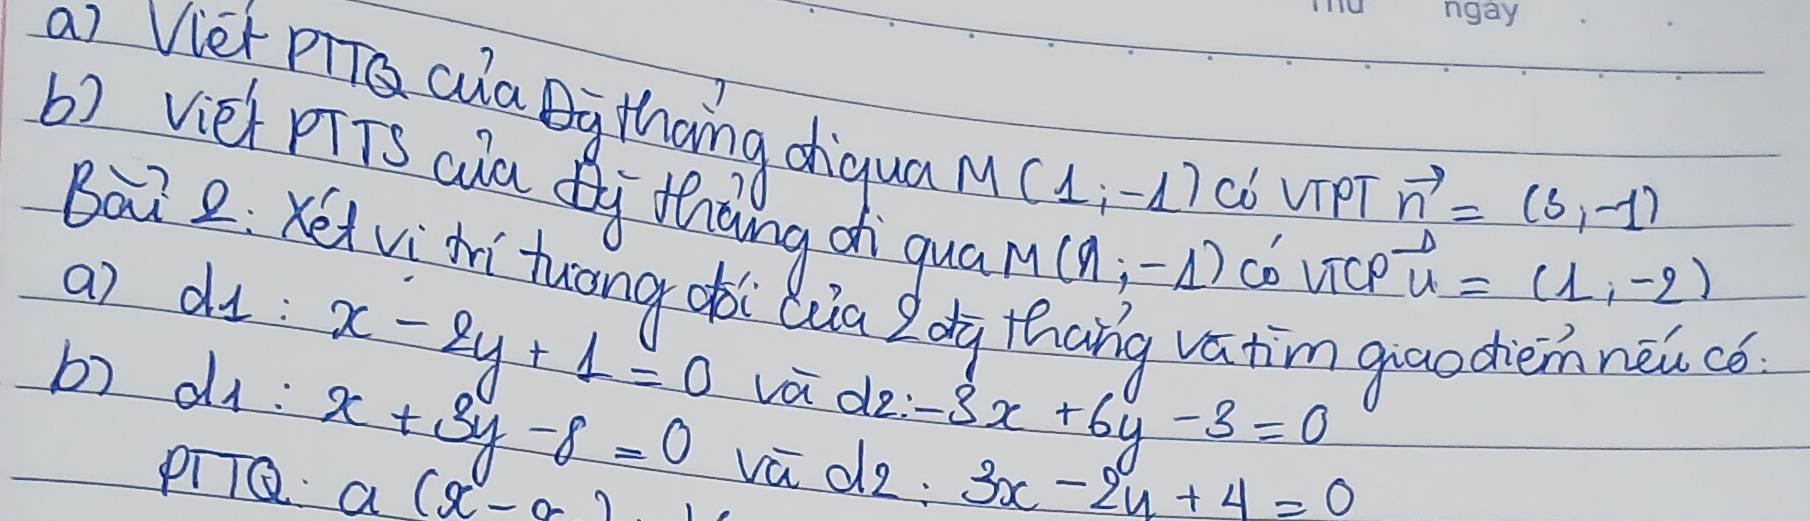 ngày
a) Viết PTTQ của Đg thẳng đi qua M(1;-1) có VTPT n→ = (3;-1)
b) Viết PTTS của Đg thẳng đi qua M(1;-1) có VTCP u→ = (1;-2)
Bài 2: Xét vị trí tương đối của 2 đg thẳng và tìm giao điểm nếu có:
a) d1: x - 2y + 1 = 0 và d2: -3x + 6y - 3 = 0
b) d1: x + 3y - 8 = 0 và d2: 3x - 2y + 4 = 0
PTTQ: a(x -